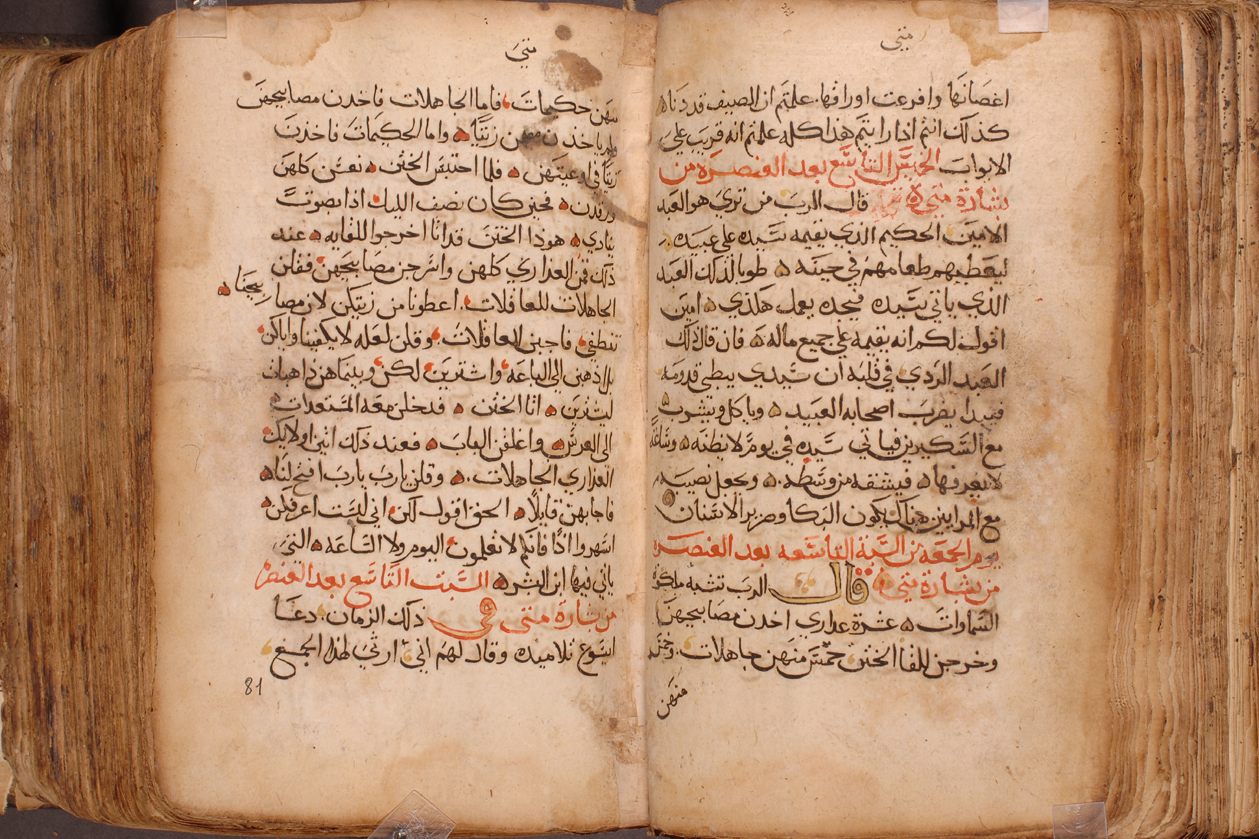 متى
اغصانها وافرعت اوراقها. علمتم ان الصيف قد دنا
كذلك انتم اذا رايتم هذا كله علمتم انه قريب على
الابواب الخميس التاسع بعد العنصره من
بشارة متى قال الرب من ترى هو العبد
الامين الحكيم الذي يقيمه سيده على عبيده.
ليعطيهم طعامهم في حينه طوبا لذلك العبد
الذي ياتي سيده فيجده يعمل هكذي امين
اقول لكم انه يقيمه على جميع ماله فان قال ذلك
العبد الردي في قلبه ان سيدي يبطي قدومه
فيبدا يضرب اصحابه العبيد وياكل ويشرب
مع السكيرين فياتي سيده في يوم لا يظنه وساعة
لا يعرفها فيشقه من وسطه. ويجعل نصيبه
مع المرايين هناك يكون البكا وصرير الاسنان
يوم الجمعه من السبة التاسعه بعد العنصره
من بشارة متى قال الرب تشبه ملكوة
السماوات عشرة عداري اخدن مصابيحهن
وخرجن للقا الختن خمس منهن جاهلات. وخمس
منهن
متى
منهن حكيمات، فاما الجاهلات فاخدن مصابيحهن
ولم ياخدن معهن زيتًا واما الحكيمات فاخدن
زيتًا في اوعيتهن فلما احتبس الختن نعسن كلهن
ورقدن فحين كان نصف الليل اذا بصوت
ينادي هوذا الختن قد اتا اخرجوا للقايه عند
ذلك قمن العذاري كلهن واسرجن مصابيحهن فقلن
الجاهلات للعاقلات. اعطونا من زيتكن لان مصابيحنا
تنطفي فاجبن العاقلات وقلن لعله لا يكفينا واياكن
بل اذهبن الى الباعه واشترين لكن وبينما هن ذاهبات
ليشترين اتا الختن فدخلن معه المستعدات
الى العرس واغلقن الباب فعند ذلك اتين اولايك
العذاري الجاهلات. وقلن يارب يارب افتح لنا
فاجابهن قايلًا الحق اقول لكن اني لست اعرفكن
اسهروا اذًا فانكم لا تعلمون اليوم ولا الساعه التي
ياتي فيها ابن البشر السبت التاسع بعد العنصره
من بشارة متى في ذلك الزمان. دعا
ايسوع تلاميده وقال لهم اني ارثي لهذا الجمع
81